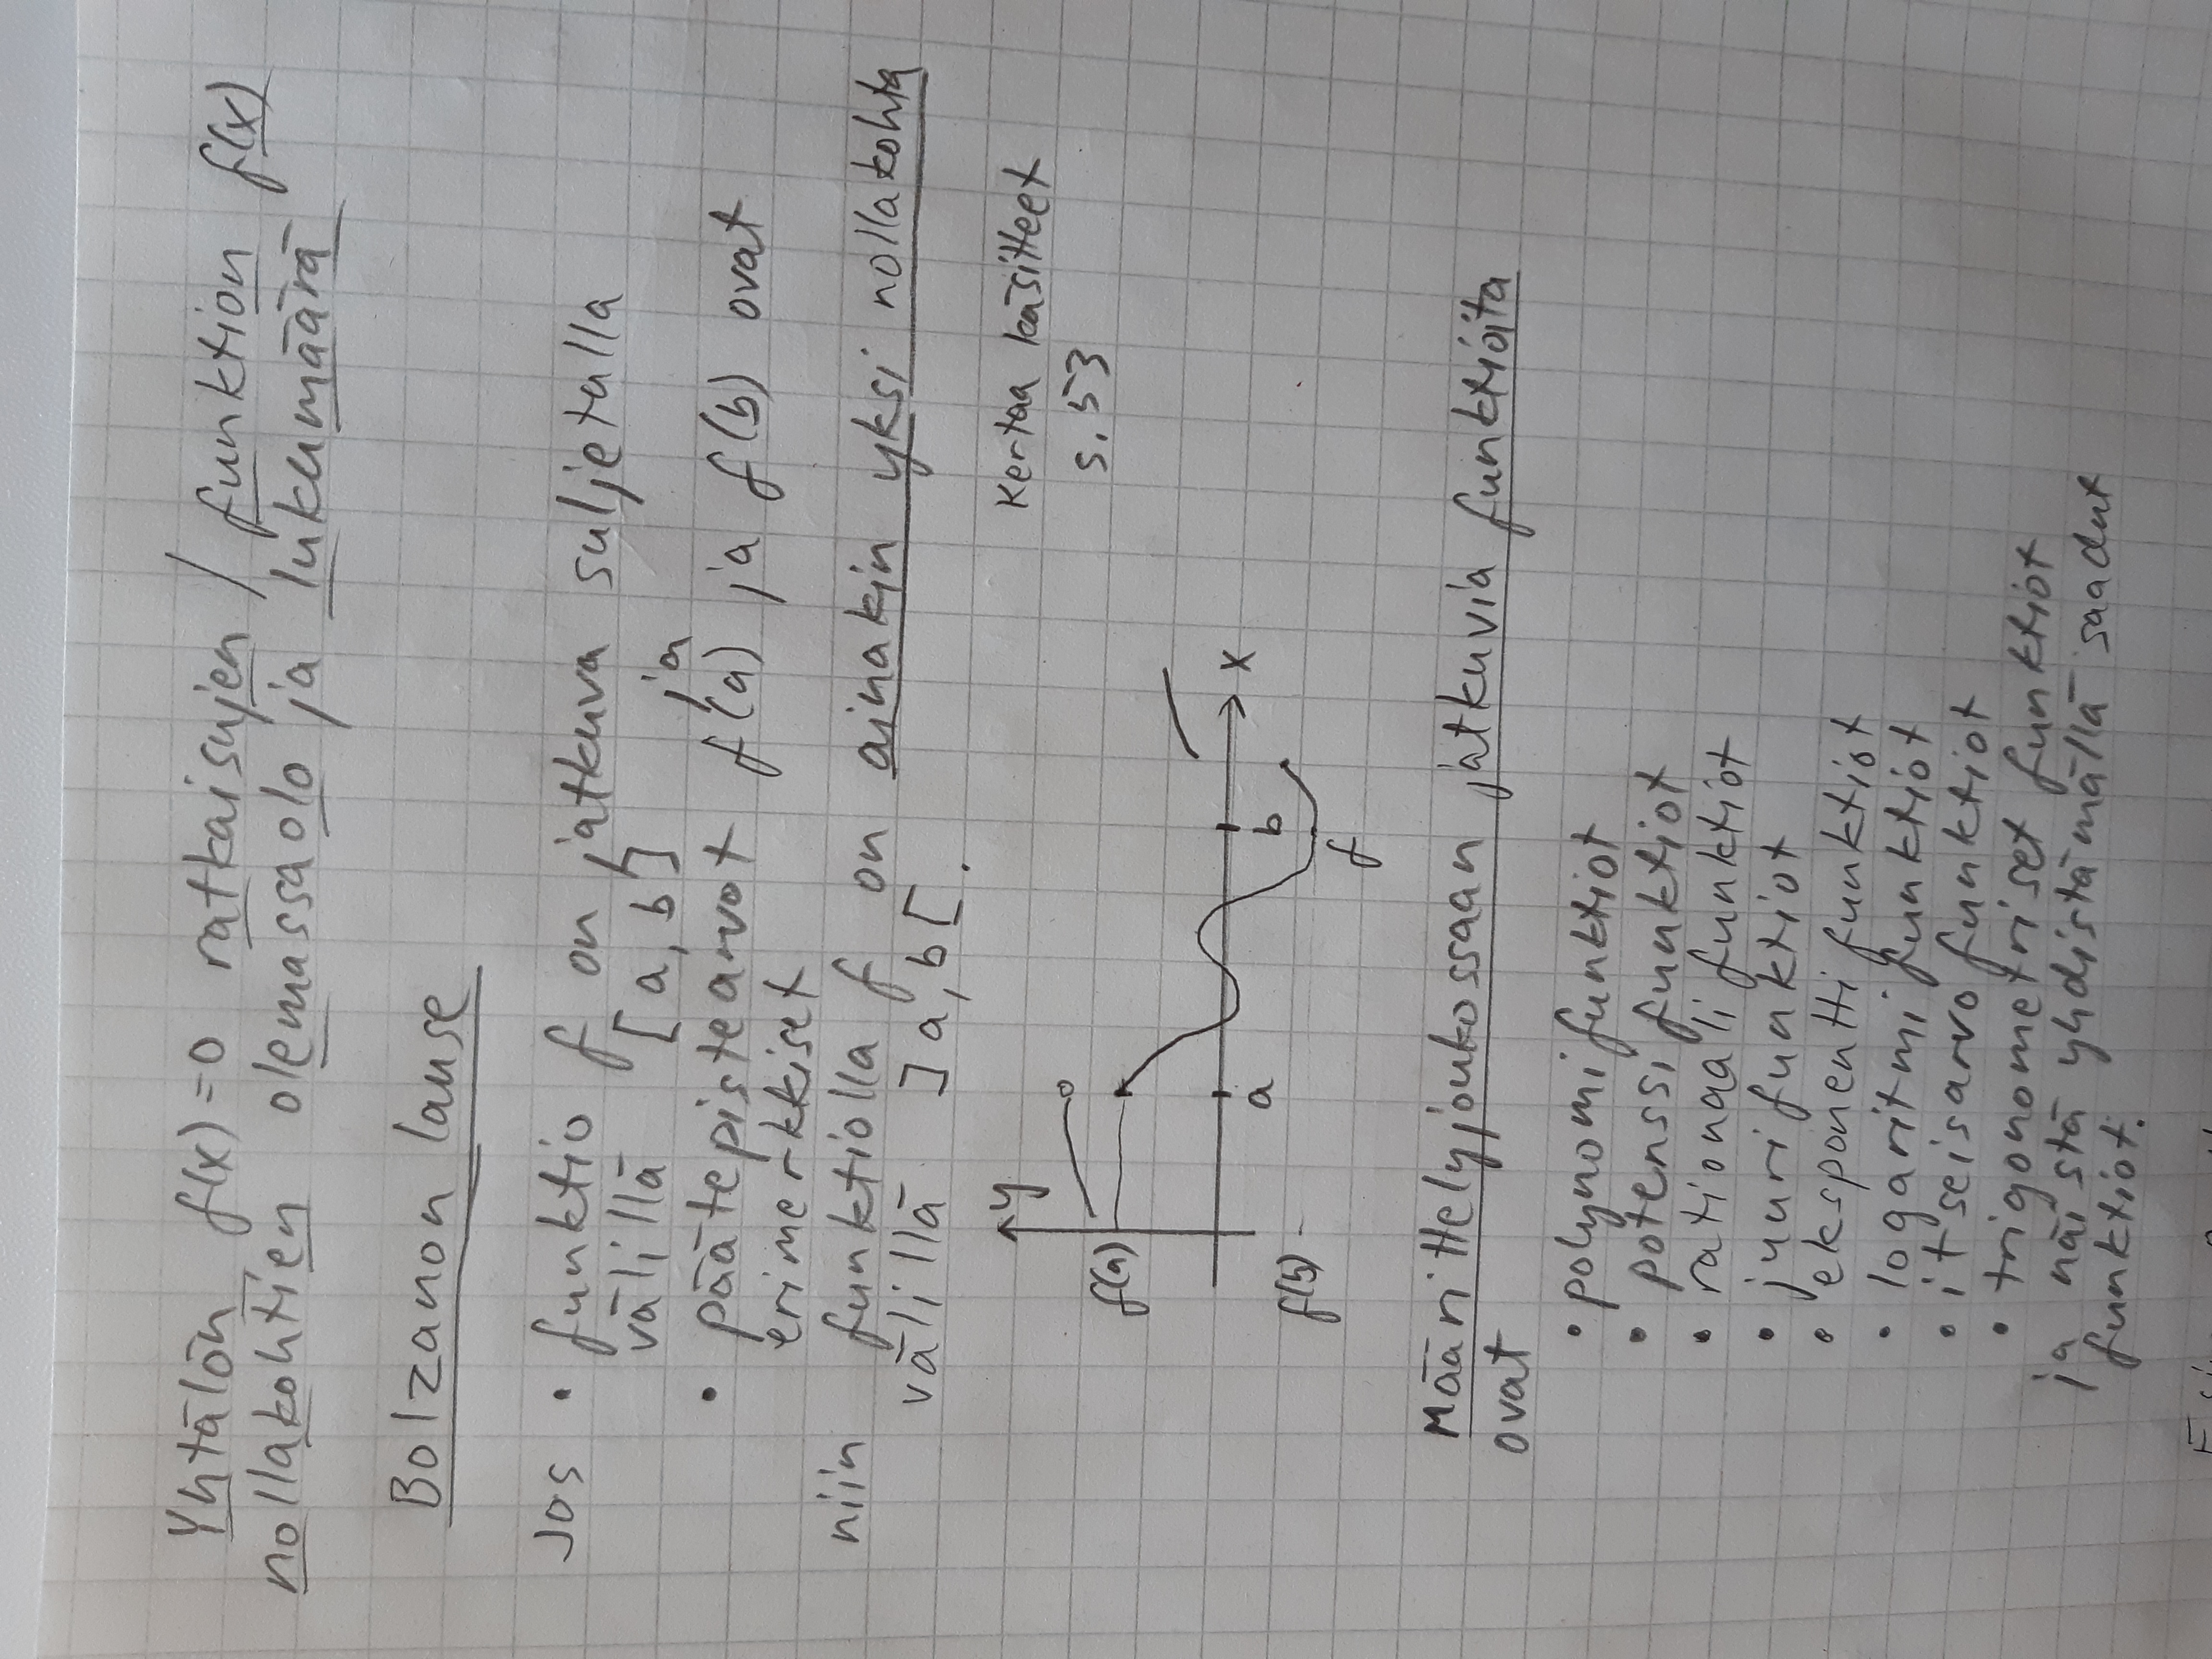 Yhtälön f(x)=0 ratkaisujen / funktion f(x)
nollakohtien olemassaolo ja lukumäärä
Bolzanon lause
Jos • funktio f on jatkuva suljetulla
välillä [a,b] ja
• päätepistearvot f(a) ja f(b) ovat
erimerkkiset
niin funktiolla f on ainakin yksi nollakohta
välillä ]a,b[.
Kertaa käsitteet
s. 53
y
f(a)
x
a
b
f(b)
f
Määrittelyjoukossaan jatkuvia funktioita
ovat
• polynomifunktiot
• potenssifunktiot
• rationaalifunktiot
• juurifunktiot
• eksponenttifunktiot
• logaritmifunktiot
• itseisarvofunktiot
• trigonometriset funktiot
ja näistä yhdistämällä saadut
funktiot.